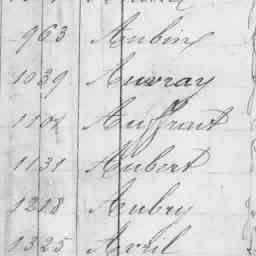 963 Aubin
1039 Auvray
1104 Auffrait
1131 Aubert
1218 Aubry
1325 Avril